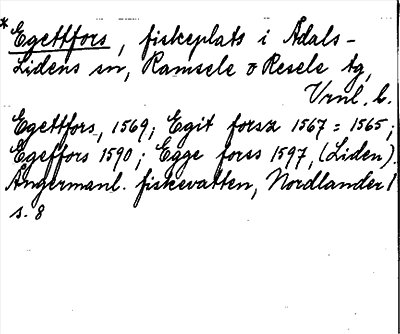 *Egettfors, fiskeplats i Ådals-
Lidens sn, Ramsele o Resele tg,
Vrnl. l.
Egettfors, 1569; Egit forsz 1567 = 1565;
Egeffors 1590; Egge forss 1597, (Liden).
Ångermanl. fiskevatten, Nordlander 1
s. 8